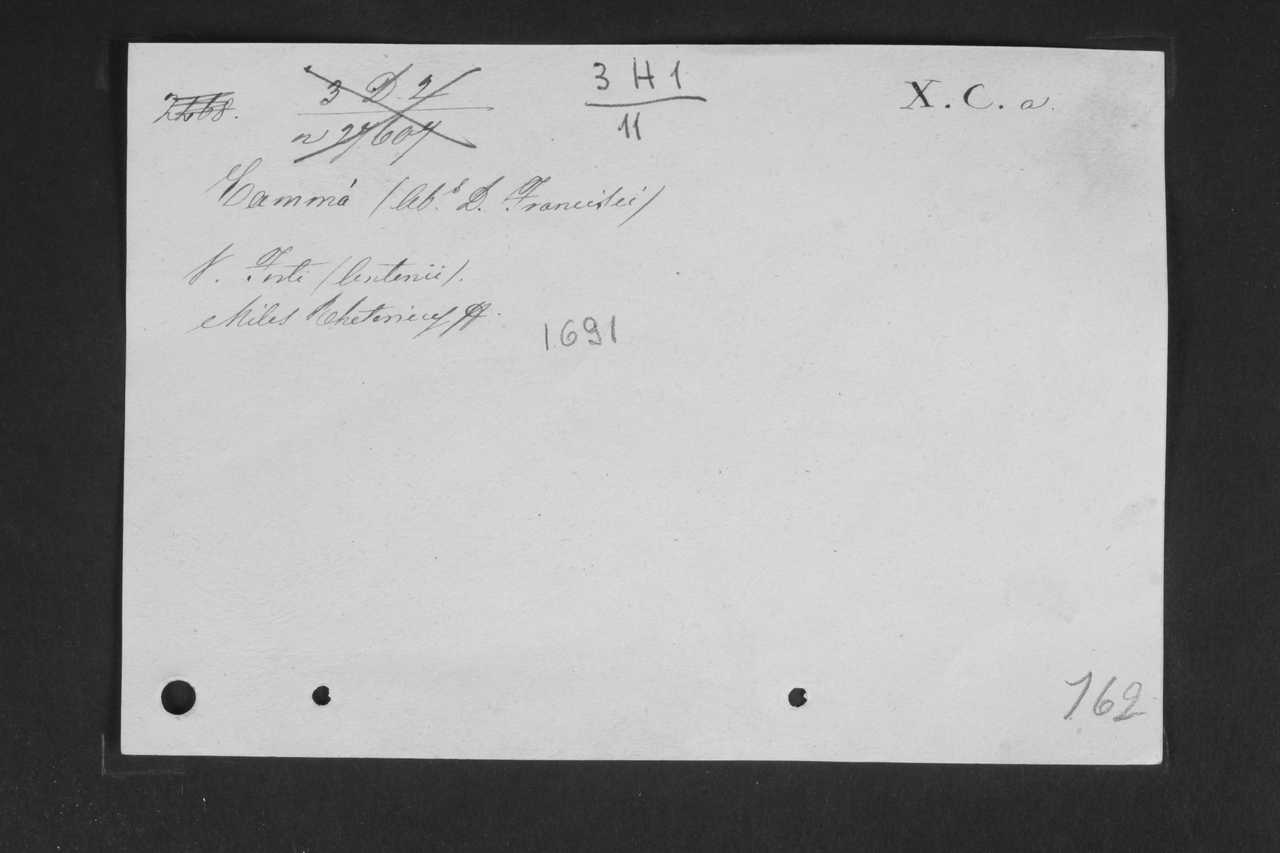 2268.
3 D. 2
n 27607
3 H 1
11
X. C. a.
Cammá (Ab.s D. Francisci)
V. Forti (Antonii).
Miles Rhetoricus, &.
1691
762